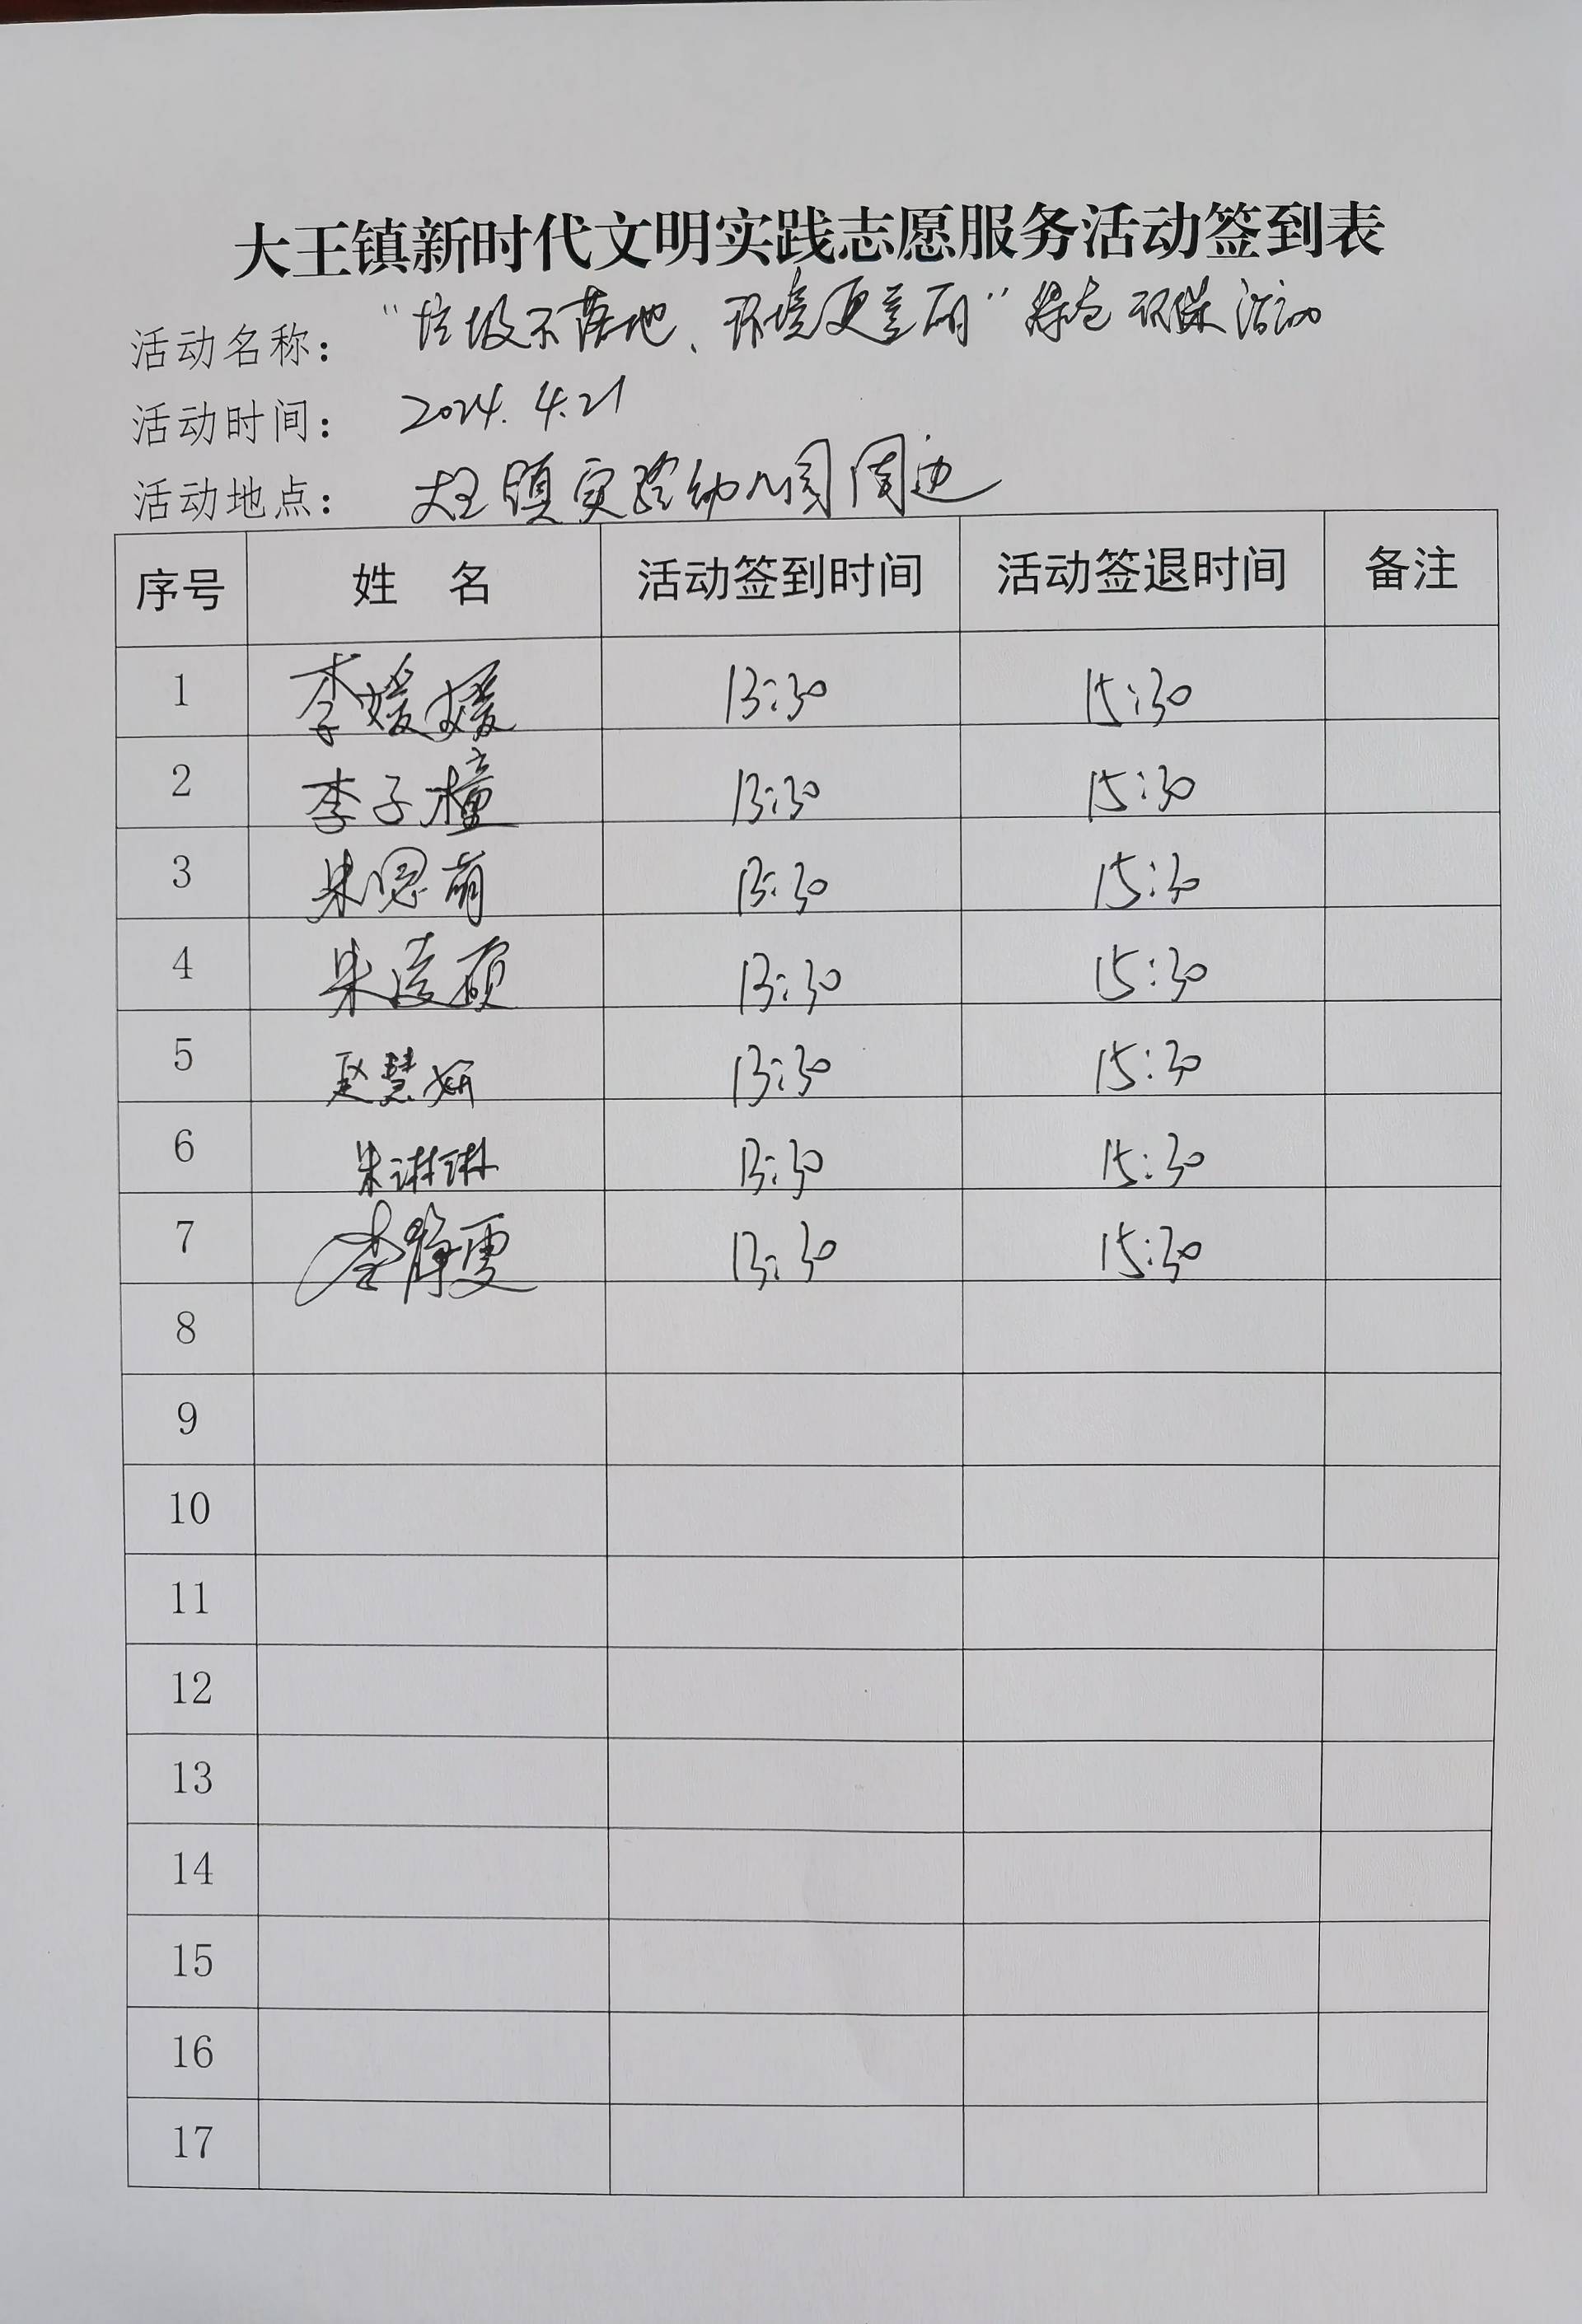 大王镇新时代文明实践志愿服务活动签到表
活动名称： “垃圾不落地、环境更美丽”特色 活动
活动时间： 2024.4.21
活动地点： 大王镇实验幼儿园周边
序号 姓 名 活动签到时间 活动签退时间 备注
1 李媛媛 13:30 15:30
2 李子橦 13:30 15:30
3 朱恩萌 13:30 15:30
4 朱 硕 13:30 15:30
5 赵慧妍 13:30 15:30
6 朱琳琳 13:30 15:30
7 李静雯 13:30 15:30
8
9
10
11
12
13
14
15
16
17